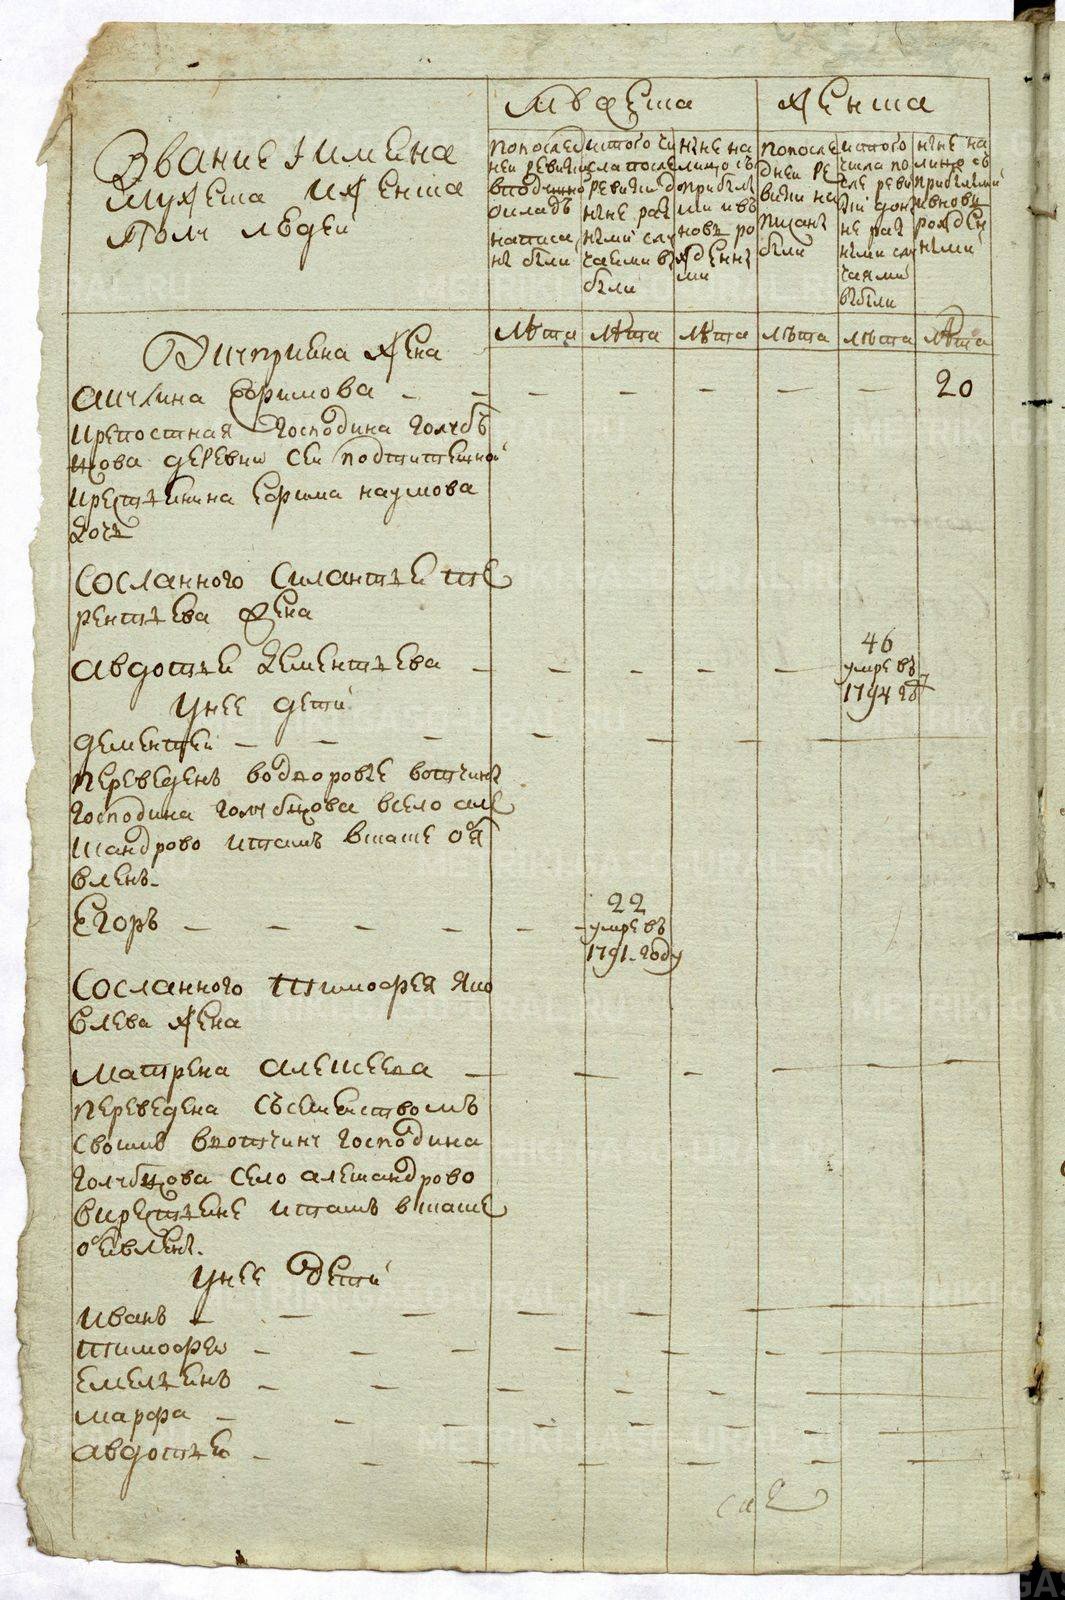 Звание и имена
мужеска и женска
полу людей
Мужеска
Женска
По последней ревизии в подушно окладъ написаны были
и того числа после ревизии до ныне разными случаями выбыли
Ныне на лицо съ прибылыми и вновь рожденными
По последней ревизии написаны были
и того числа после ревизии до ныне разными случаями выбыли
Ныне на лицо съ прибылыми и вновь рожденными
Лѣта Лѣта Лѣта лѣта лѣта Лѣта
жена
Акилина Ефимова 20
крепостная Господина Голуб
цова деревни сей
крестьянина Ефима Наумова
дочь
Сосланного Силантьеи Те
рентьева жена
Авдотьеи Дементьева
46
умре въ
1794 год
у нее дети
дементеи
переведенъ во вотчину
Господина Голубцова в село але
ксандрово и тамъ в скаске объя
вленъ.
Егоръ
22
умре въ
1791 году
Сосланного Тимофея Яко
влева жена
Матрена Алексеева
переведена съ семействомъ
своимъ в вотчину Господина
Голубцова село александрово
и тамъ в скаске
объявлены.
у нее дети
Иванъ
Тимофеи
Емельянъ
Марфа
Авдотьеи